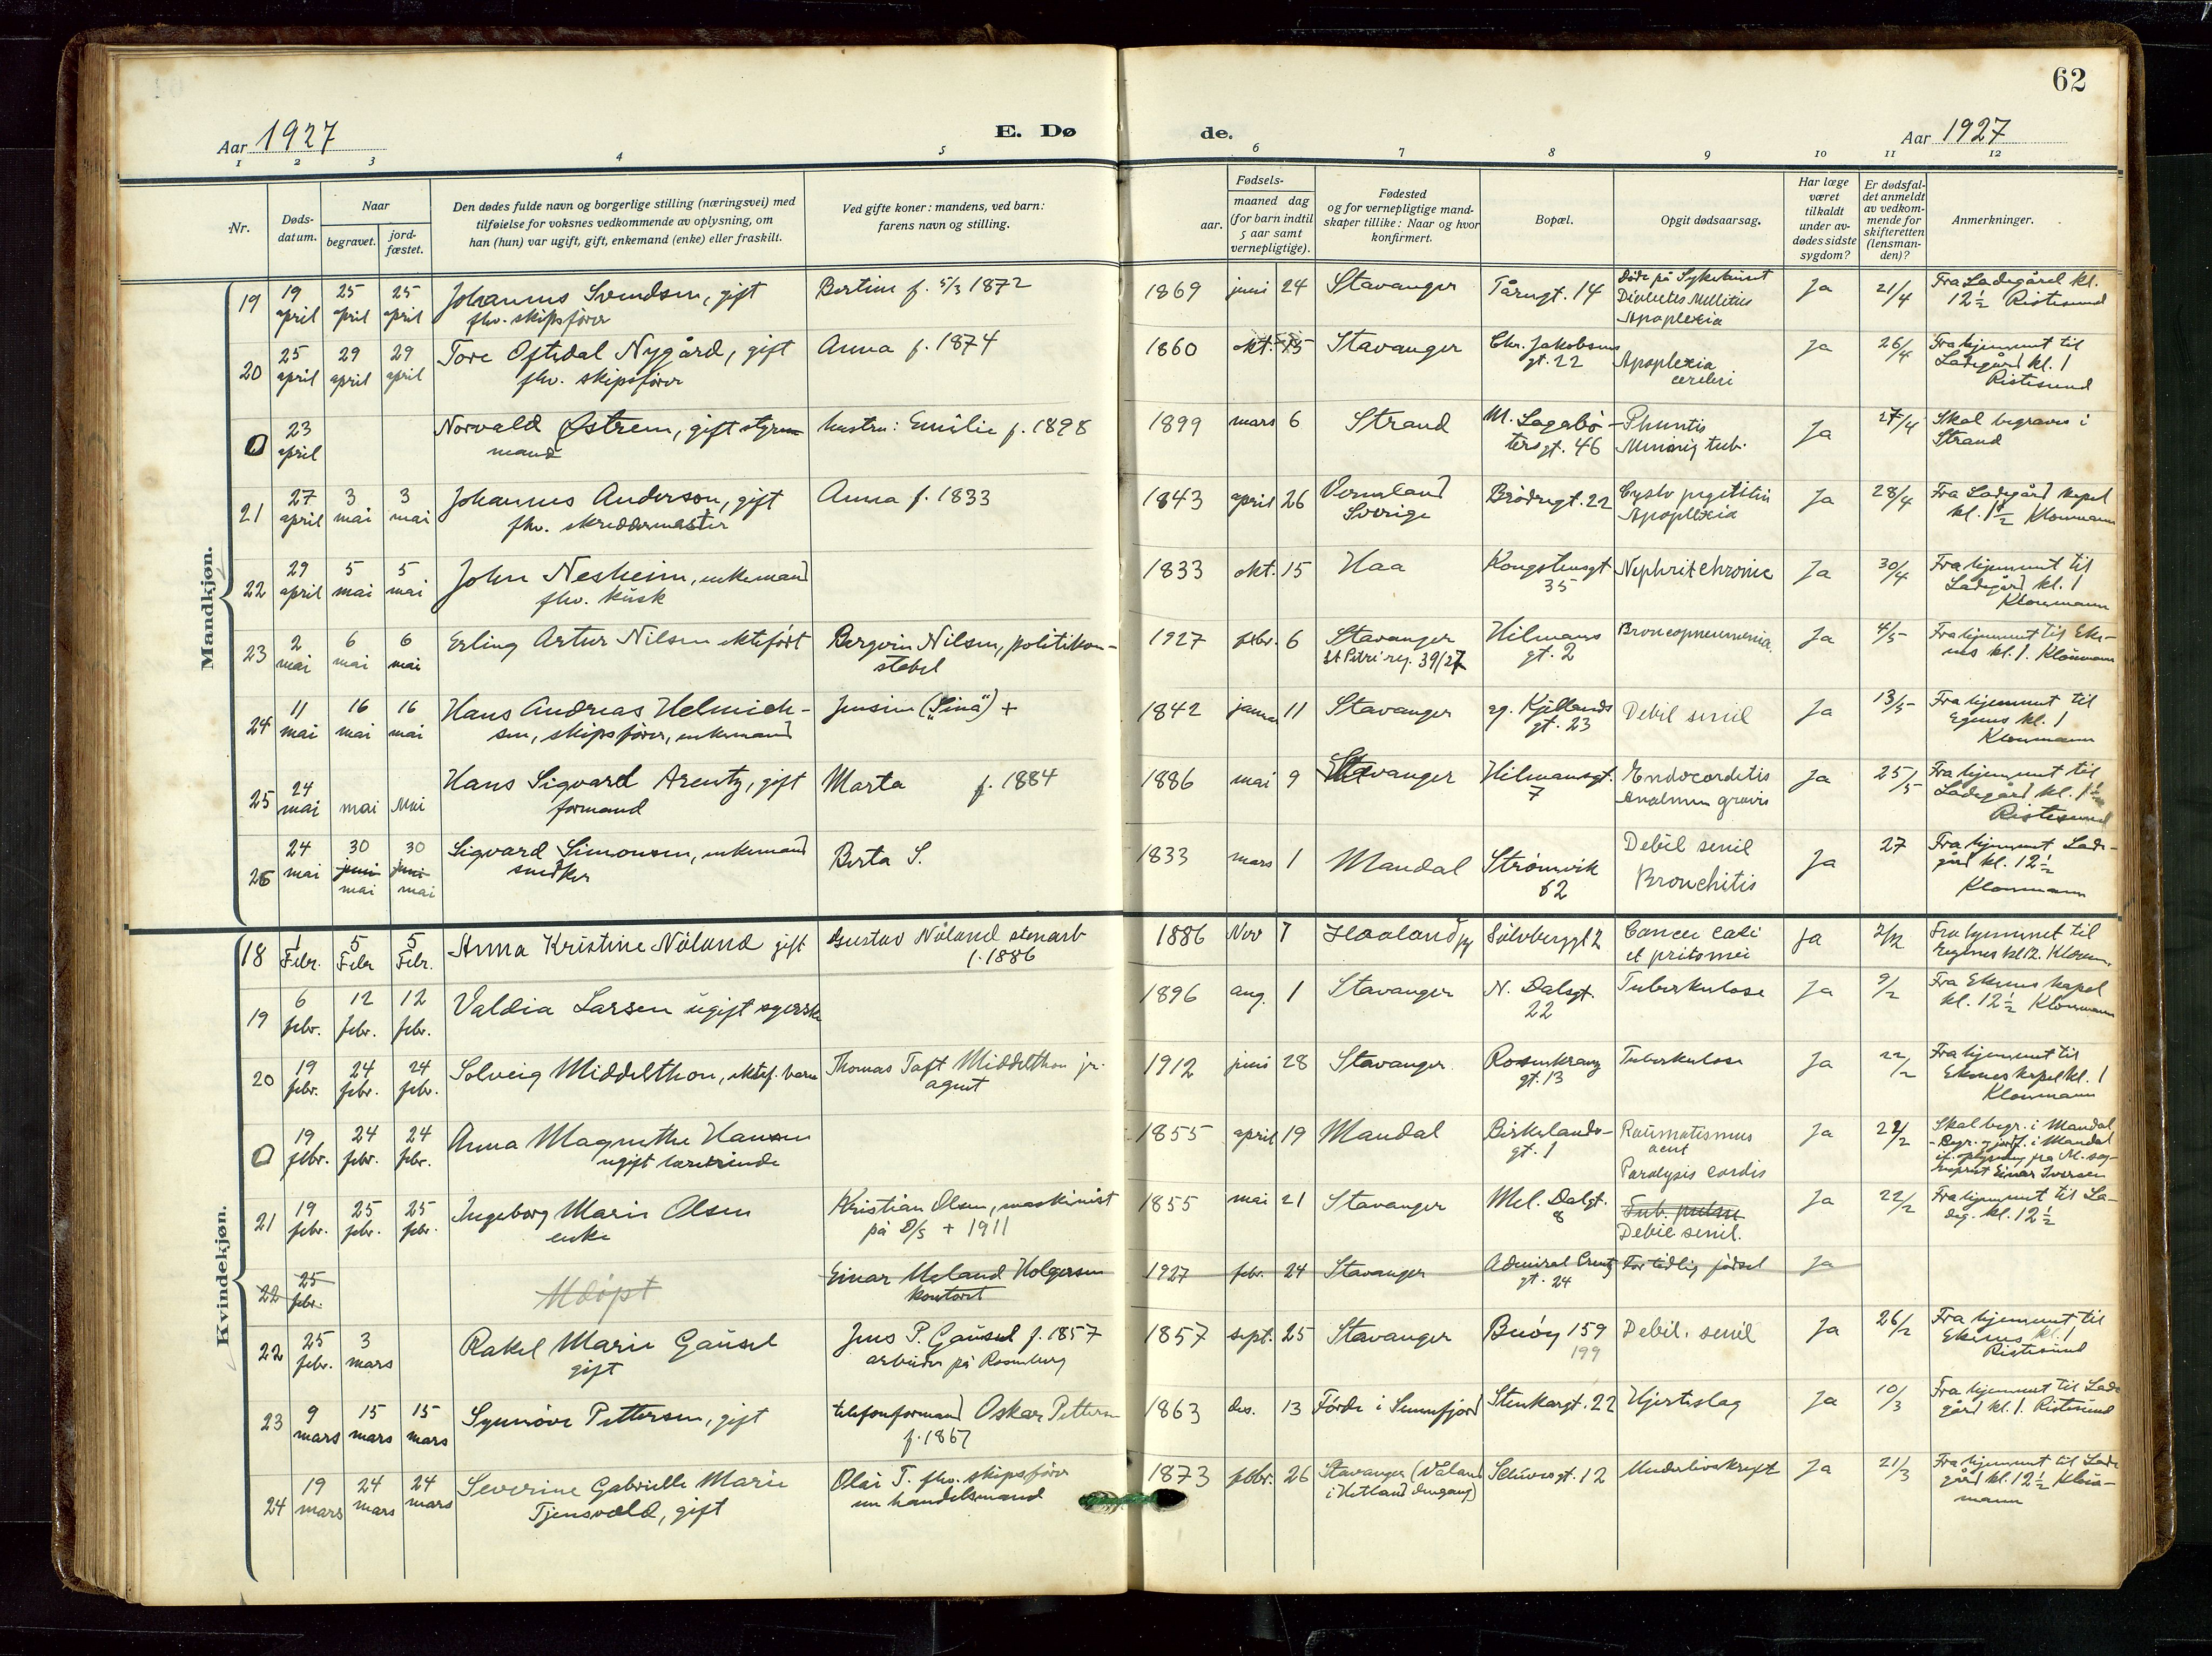 62
Aar 1927
E. Dø
de.
Aar 1927
1 2 3 4 5 6 7 8 9 10 11 12
Nr.
Døds-
datum.
Naar
begravet.
jord-
fæstet.
Den dødes fulde navn og borgerlige stilling (næringsvei) med
tilføielse for voksnes vedkommende av oplysning, om
han (hun) var ugift, gift, enkemand (enke) eller fraskilt.
Ved gifte koner: mandens, ved barn:
farens navn og stilling.
Fødsels-
aar.
maaned dag
(for barn indtil
5 aar samt
vernepligtige).
Fødested
og for vernepligtige mand-
skaper tillike: Naar og hvor
konfirmert.
Bopæl.
Opgit dødsaarsag.
Har læge
været
tilkaldt
under av-
dødes sidste
sygdom?
Er dødsfal-
det anmeldt
av vedkom-
mende for
skifteretten
(lensman-
den)?
Anmerkninger.
Mandkjøn.
19 19 april 25 april 25 april Johannes Svendsen, gift
fhv. skipsfører
Bertine f. 5/3 1872
1869 juni 24 Stavanger Tårngt. 14 Døde på Sykehuset
Diabetes Mellitus
Apoplexia
Ja 21/4 Fra Ladegård kl.
12 1/2 Ristesund
20 25 april 29 april 29 april Tore Oftedal Nygård, gift
fhv. skipsfører
Anna f. 1874
1860 okt. 15 Stavanger Chr. Jakobsens
gt. 22
Apoplexia
cerebri
Ja 26/4 Fra hjemmet til
Ladegård kl. 1
Ristesund
0 23 april Norvald Østrem, gift styrm
mand
hustru: Emilie f. 1898
1899 mars 6 Strand M. Lagabø-
tersgt. 46
Ja 27/4 Skal begraves i
Strand
21 27 april 3 mai 3 mai Johannes Anderson, gift
fhv. skreddermester
Anna f. 1833
1843 april 26 Vermland
Sverige
Brødregt. 22
Apoplexia
Ja 28/4 Fra Ladegård kapel
kl. 1 1/2 Klonmann
22 29 april 5 mai 5 mai John Nesheim, enkemand
fhv. kusk
1833 okt. 15 Haa Kongstensgt
35
Nephrit chronic Ja 30/4 Fra hjemmet til
Ladegård kl. 1
Klonmann
23 2 mai 6 mai 6 mai Erling Artur Nilsen ektefødt
Bergvin Nilsen, politikon-
stabel
1927 febr. 6 Stavanger
St Petri reg. 39/27
Hilmans
gt. 2
Broncopneumonia. Ja 4/5 Fra hjemmet til Eke-
nes kl. 1. Klonmann
24 11 mai 16 mai 16 mai Hans Andreas Helmich-
sen, skipsfører, enkemand
Jensine ("Sina") +
1842 januar 11 Stavanger Kjellands
gt. 23
Debil senil Ja 13/5 Fra hjemmet til
Egenes kl. 1
Klonmann
25 24 mai mai Mai Hans Sigvard Arentz, gift
formand
Marta f. 1884
1886 mai 9 Stavanger Hilmansgt.
7
Endocarditis
gravis
Ja 25/5 Fra hjemmet til
Ladegård kl. 1 1/2
Ristesund
26 24 mai 30 juni mai 30 juni mai Sigvard Simonsen, enkemand
snedker
Berta S.
1833 mars 1 Mandal Strømvik
62
Debil senil
Bronchitis
Ja 27 Fra hjemmet Lade-
gård kl. 12 1/2
Klonmann
Kvindekjøn.
18 1 Febr. 5 Febr 5 Febr. Anna Kristine Nåland gift
Gustav Nåland stenarb
f. 1886
1886 Nov 7 Haaland Sølvberggt 2 Cancer
et
Ja 2/2 Fra hjemmet til
Egenes kl 12. Klonm.
19 6 febr. 12 febr. 12 febr. Valdia Larsen ugift syerske
1896 aug. 1 Stavanger N. Dalsgt.
22
Tuberkulose Ja 9/2 Fra Ekenes kapel
kl. 12 1/2 Klonmann
20 19 febr. 24 febr. 24 febr. Solveig Middelthon, ektef. barn
Thomas Taft Middelthon jr.
agent
1912 juni 28 Stavanger Rosenkrantz
gt. 13
Tuberkulose Ja 22/2 Fra hjemmet til
Ekenes kapel kl. 1
Klonmann
0 19 febr. 24 febr. 24 febr. Anna Magnethe Hansen
ugift lærerinde
1855 april 19 Mandal Birkelands-
gt. 1
Raumatismus
acut
Paralysis cordis
Ja 22/2 Skal begr. i Mandal
Begr. og jordf. i Mandal
if. oplysning fra M. sog-
neprest Einar Iversen
21 19 febr. 25 febr. 25 febr. Ingeborg Marie Olsen
enke
Kristian Olsen, maskinist
på D/S + 1911
1855 mai 21 Stavanger Mel. Dalgt.
8
Tub. pulm.
Debil senil.
Ja 22/2 Fra hjemmet til La-
deg. kl. 12 1/2
22 25 febr. Udøpt
Einar Meland Holgersen
kontorist
1927 febr. 24 Stavanger Admiral Crutz
gt. 24
For tidlig fødsel Ja
22 25 febr. 3 mars Rakel Marie Gausel
gift
Jens P. Gausel f. 1857
arbeider på Rosenberg
1857 sept. 25 Stavanger Buøy 159
199
Debil. senil Ja 26/2 Fra hjemmet til
Ekenes kl. 1
Ristesund
23 9 mars 15 mars 15 mars Synnøve Pettersen, gift
telefonformand Oskar Pettersen
f. 1867
1863 des. 13 Førde i Sunnfjord Stenkargt. 22 Hjerteslag Ja 10/3 Fra hjemmet til Lade
gård kl. 1. Ristesund
24 19 mars 24 mars 24 mars Severine Gabrielle Marie
Tjensvold, gift
Olai T. fhv. skipsfører
nu handelsmand
1873 febr. 26 Stavanger (Våland
i Hetland dengang)
gt. 12 Underlivskreft Ja 21/3 Fra hjemmet til Lade
gård kl. 12 1/2 Klon-
mann